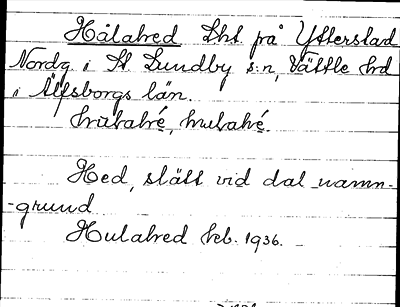 Hålabred Lht på Ytterstad
Nordg. i St. Lundby s:n, Vättle hd
i Älfsborgs län.
hulabré, hulabré.
Hed, slätt vid dal namn-
-grund
Hulabred feb. 1936.